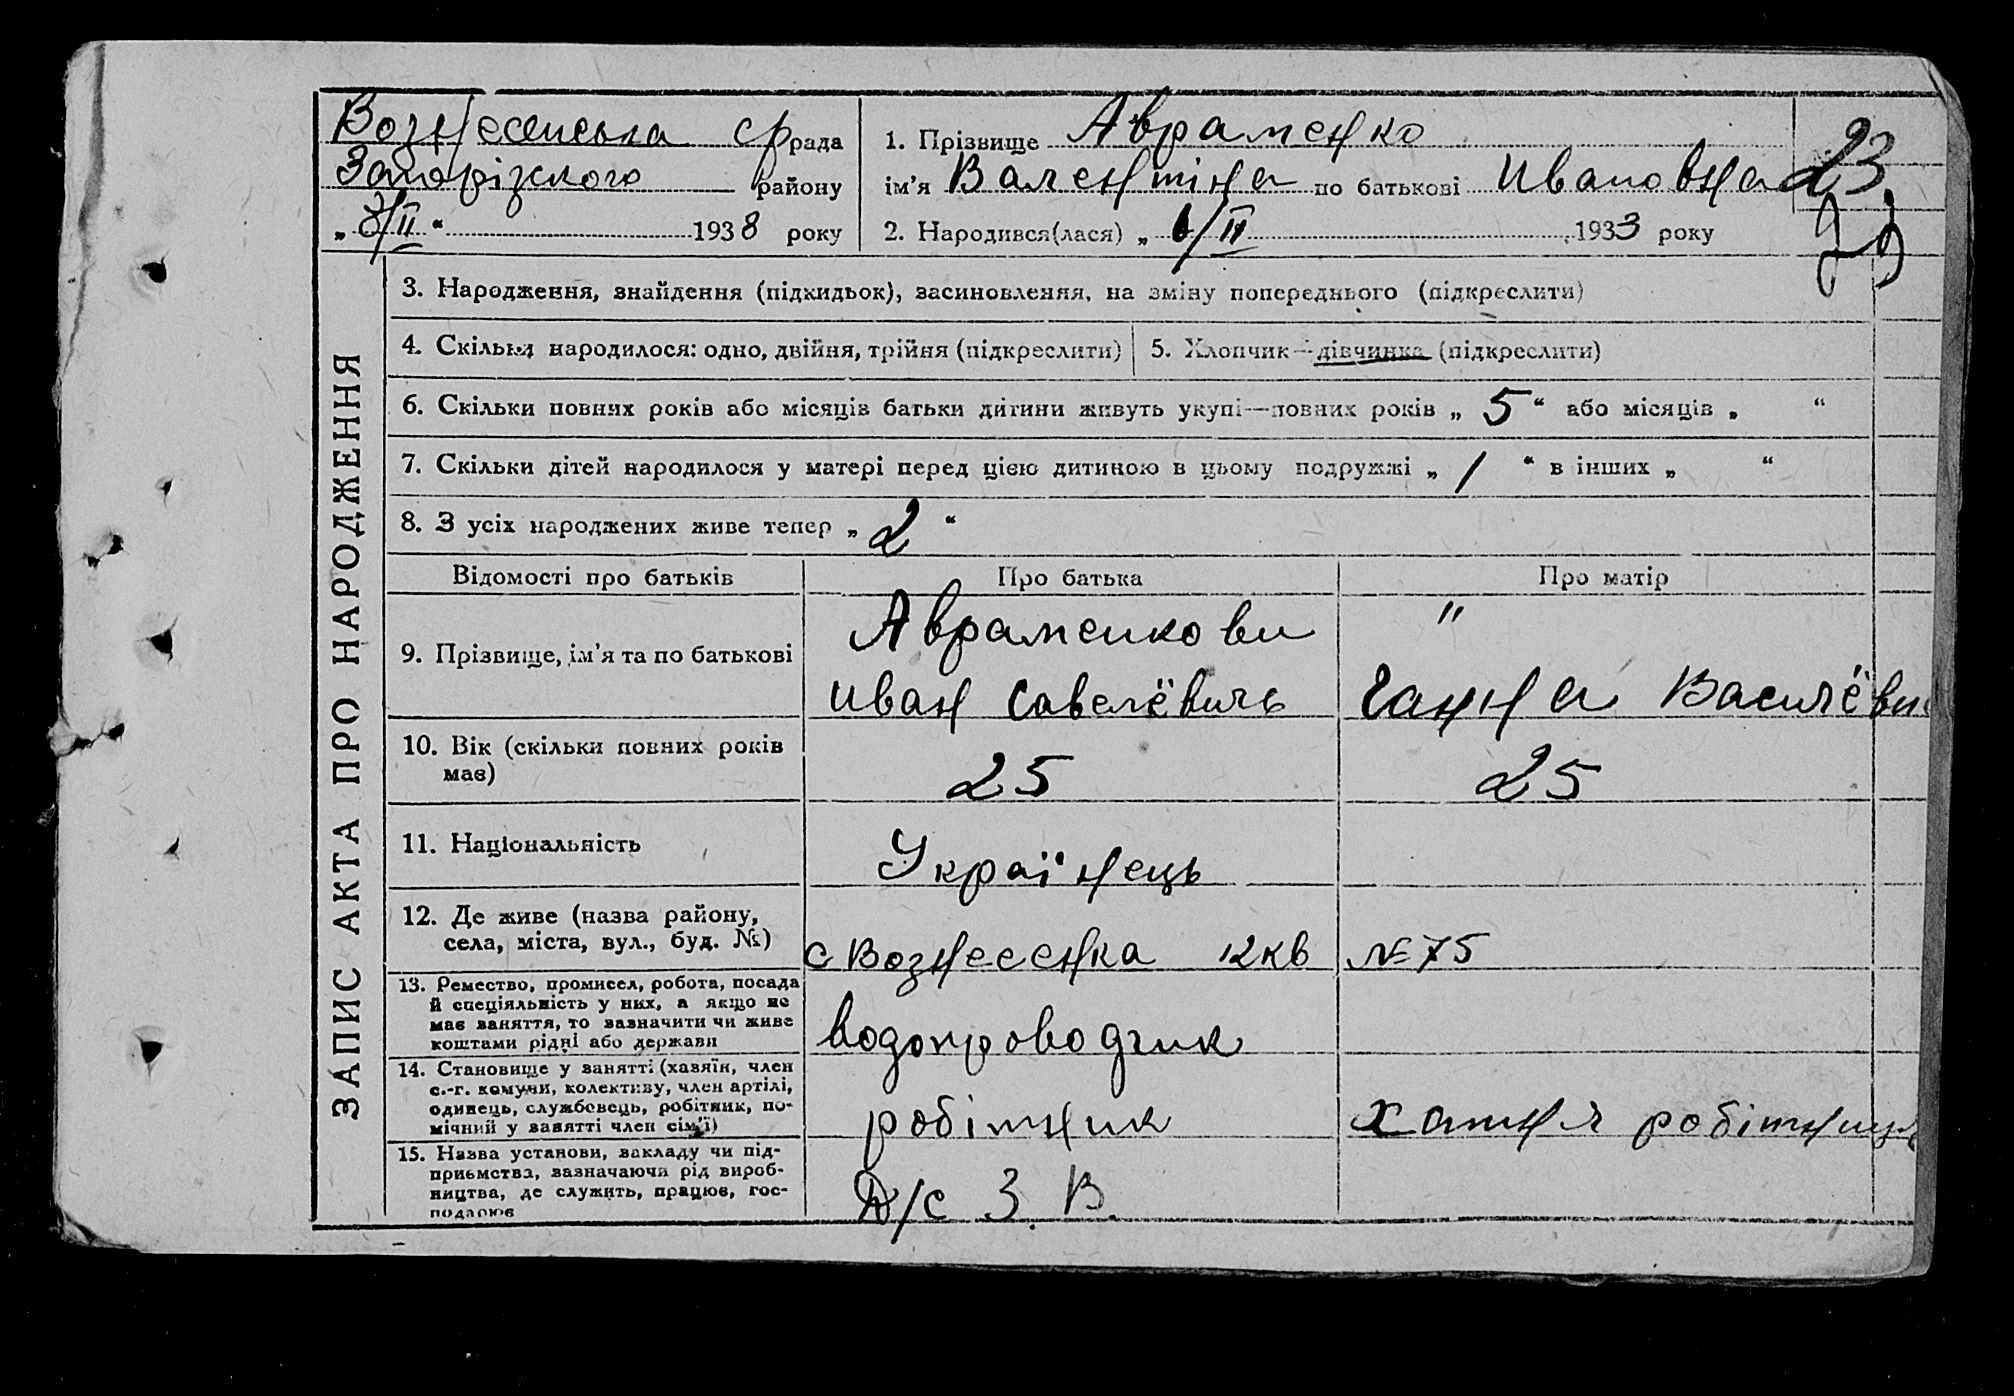 Вознесенська ср рада
Запорізского району
„ 8/II “ 1938 року
1. Прізвище Авраменко
ім’я Валентіна по батькові Ивановна
2. Народився(лася) „ 6/II 1933 року
23.
ЗАПИС АКТА ПРО НАРОДЖЕННЯ
3. Народження, знайдення (підкидьок), засиновлення, на зміну попереднього (підкреслити)
4. Скільки народилося: одно, двійня, трійня (підкреслити)
5. Хлопчик—дівчинка (підкреслити)
6. Скільки повних років або місяців батьки дитини живуть укупі—повних років „ 5 “ або місяців „ “
7. Скільки дітей народилося у матері перед цією дитиною в цьому подружжі „ 1 “ в інших „ “
8. З усіх народжених живе тепер „ 2 “
Відомості про батьків Про батька Про матір
9. Прізвище, ім’я та по батькові
Авраменкови "
Иван Савелёвичь Ганна Василёвн
10. Вік (скільки повних років
має)
25 25
11. Національність
Українець
12. Де живе (назва району,
села, міста, вул., буд. №)
с Вознесенка 12кв №75
13. Ремество, промисел, робота, посада
й спеціяльність у них, а якщо не
має заняття, то зазначити чи живе
коштами рідні або держави
водопроводчик
14. Становище у занятті (хазяїн, член
с.-г. комуни, колективу, член артілі,
одинець, службовець, робітник, по-
мічний у занятті член сім’ї)
робітник хатня робітниця
15. Назва установи, закладу чи під-
приємства, зазначаючи рід вироб-
ництва, де служить, працює, гос-
подарює
Д/с З. В.